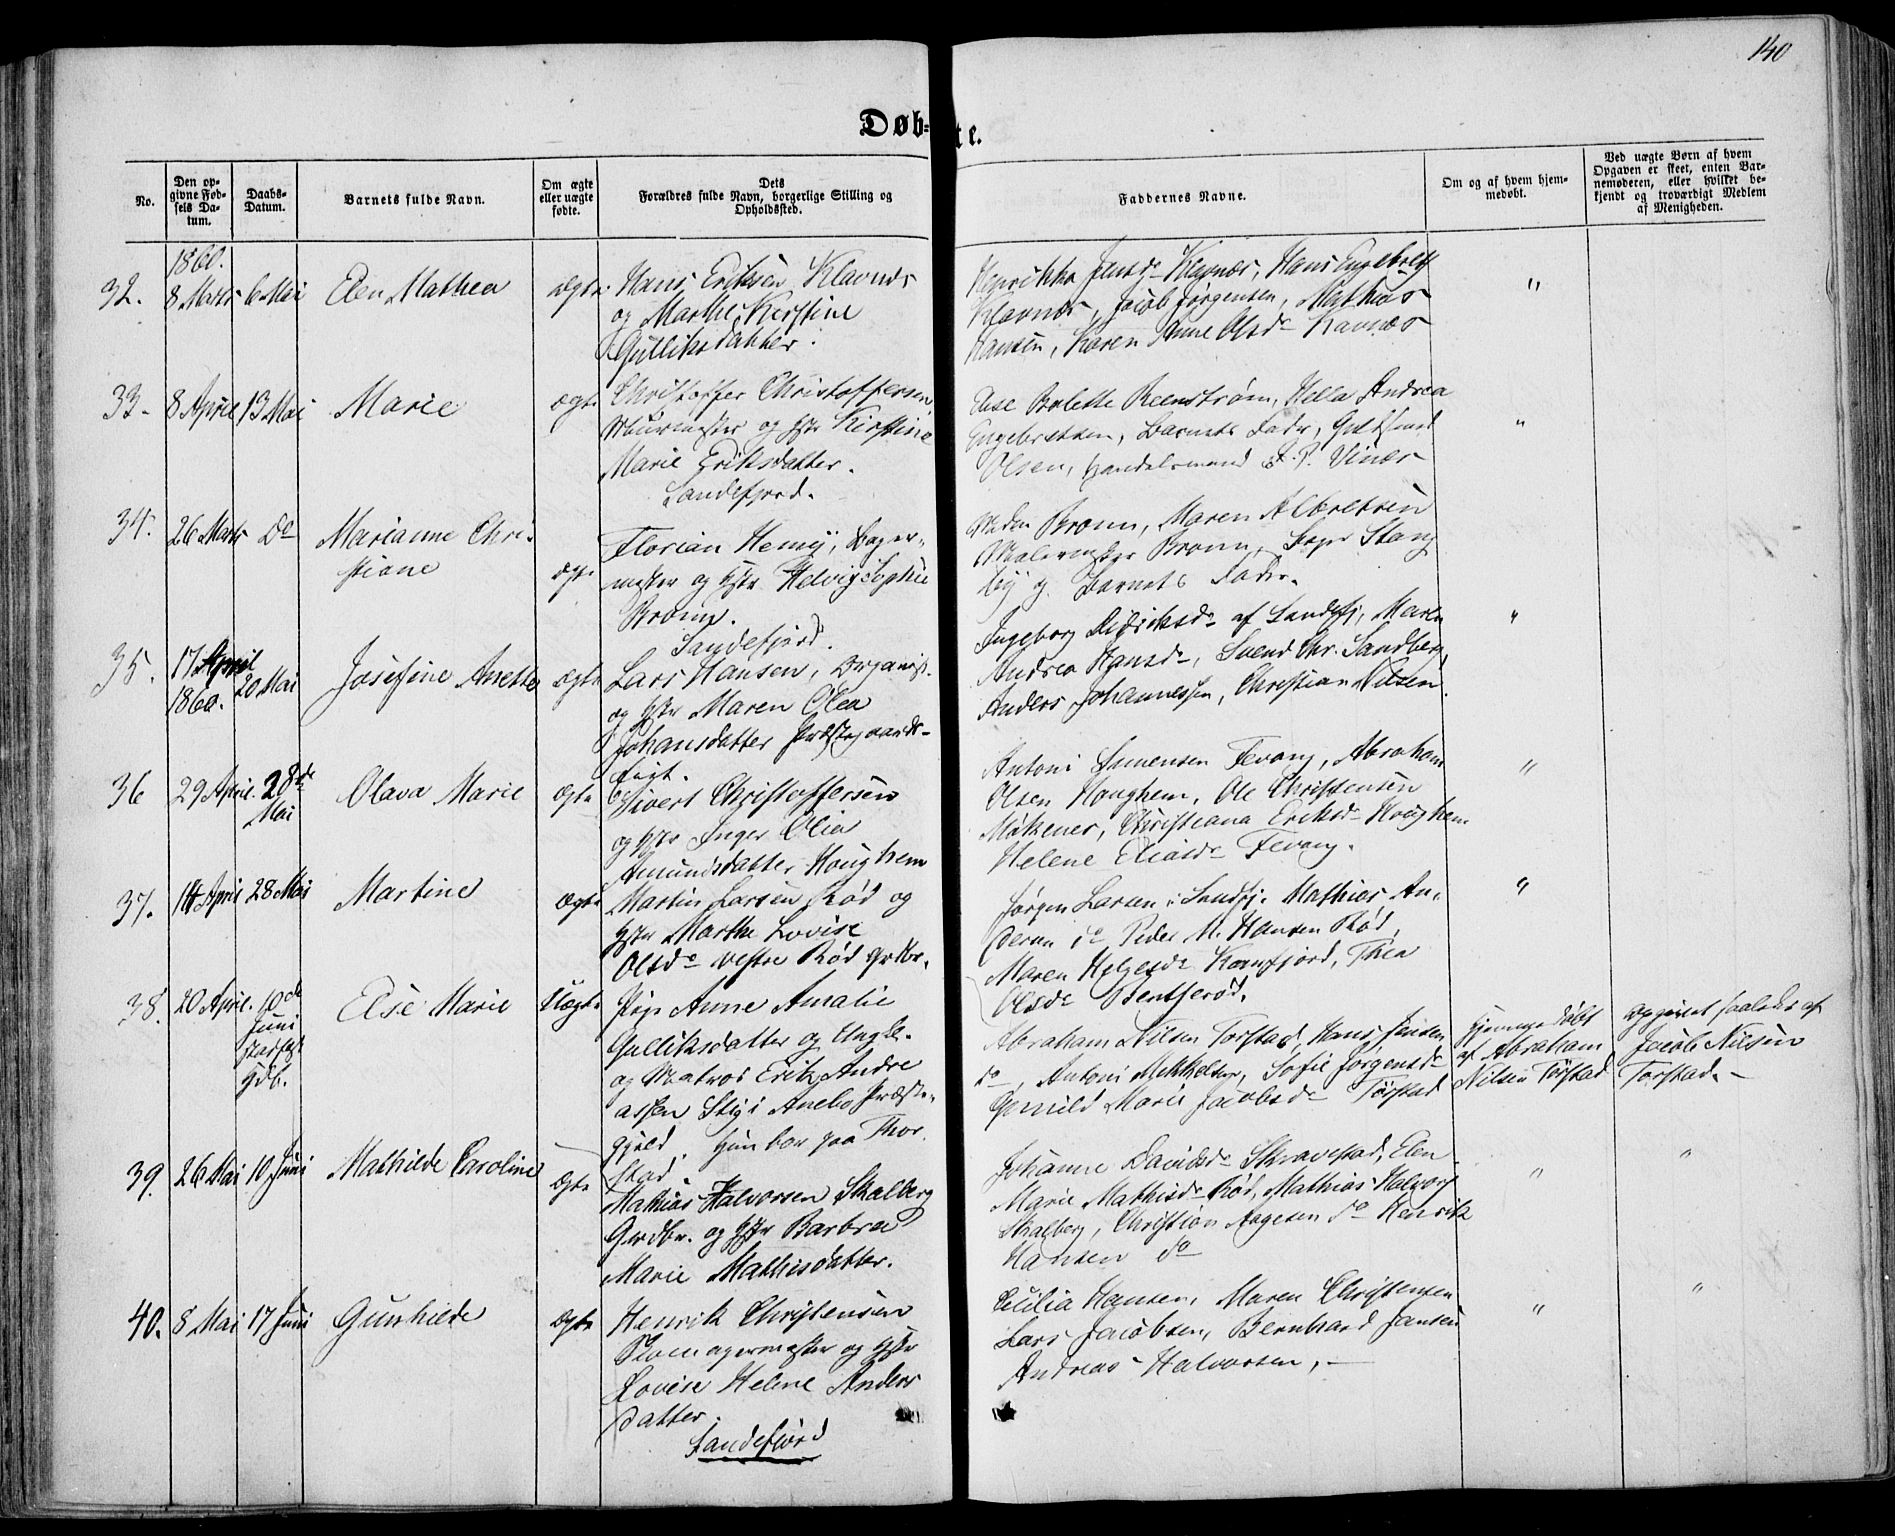 140
Døbte.
No.
Den opgivne Fødsels Datum.
Daabs-Datum.
Barnets fulde Navn.
Om ægte eller uægte fødte.
Dets Forældres fulde Navn, borgerlige Stilling og Opholdssted.
Faddernes Navne.
Om og af hvem hjemmedøbt.
Ved uægte Børn af hvem Opgaven er skeet, enten Barnemoderen, eller hvilket bekjendt og troværdigt Medlem af Menigheden.
1860.
32. 8 Marts 6 Mai Elen Mathea ægte Hans Eriksen Klavnes
og Marthe Kirstine
Gulliksdatter.
Henrikka Jensdr Klavnæs, Hans Engebrets
Klavnæs, Jacob Jørgensen, Mathias
Hansen, Karen Anne Olsdr Kavnæs
"
33. 8 April 13 Mai Marie ægte Christoffer Christoffersen,
Muurmester og Hstr Kirstine
Marie Eriksdatter.
Sandefjord.
Balette Reenstrøm, Hella Andrea
Engebretsen, Barnets Fader, Guldsmed
Olsen, Handelsmand
"
34. 26 Marts Do Marianne Chri-
stiane
ægte Florian Henry, Bager-
mester og Hstr Helvig Sophie
Bronn.
Sandefjord.
Bronn, Maren Albretsen
Malermester Bronn,
og Barnets Fader.
"
35. 17 April
1860. 20 Mai Josefine Anette ægte Lars Hansen, Organist
og Hstr Maren Olea
Johansdatter Præstegaards-
Ingeborg Didriksdr af Sandefj, Maren
Andrea Hansdr, Svend Chr. Sandberg,
Anders Johannessen, Christian Nilsen.
36 29 April. 28de
Mai Olava Marie ægte Sivert Christoffersen
og Hstr Inger Olia
Amundsdatter Houghem
Antoni Samensen Fevang, Abraham
Olsen Houghem, Ole Christensen
Møkener, Christiana Eriksdr Houghem
Helene Eliasdr Fevang.
"
37. 14 April 28 Mai Martine Ægte Martin Larsen Rød og
Hstr Marthe Lovise
Olsdr vestre Rød Grdbr.
Jørgen Larsen i Sandefj. Mathias An-
dersen do Peder M. Hansen Rød,
Maren Helgesdr Kamfjord, Thea
Olsdr Bentserød.
"
38. 20 April. 10de
Juni
Else Marie Uægte Pige Anne Amalie
Gulliksdatter og Ungk.
og Matros Erik Andre
assen Sti i Anebo Præste-
gjeld. Hun bor paa Thor-
stad.
Abraham Nilsen Torstad, Hans Jensen
do, Antoni Mikkelsen, Sofie Jørgensdr
Gunild Marie Jacobsdr Torstad
hjemmedøbt
af Abraham
Nilsen Torstad
Opgivet saaledes af
Jacob Nilsen
Torstad.
39. 26 Mai 10 Juni Mathilde Caroline ægte Mathias Halvorsen Skalberg
Grdbr. og Hstr Barbra
Marie Mathisdatter.
Johanne Davidsdr Skravestad, Elen
Marie Mathisdr Rød, Mathias Halvors
Skalberg, Christian Aagesen do Henrik
Hansen do
" "
40. 8 Mai 17 Juni Gunhilde ægte Henrik Christensen
Skomagermester og Hstr
Lovise Helene Anders
datter.
Sandefjord
Cecilia Hansen, Maren Christensen
Lars Jacobsen, Bernhard Jansen
Andreas Halvorsen,
" "